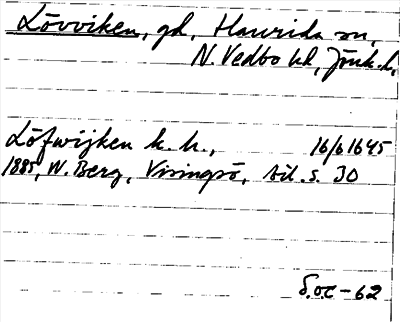 Lövviken, gd, Haurida sn,
N. Vedbo hd, Jönk. l,
Löfwijken k. h., 16/6 1645
1885, W. Berg, Visingsö, sid. s. 30
S.O.C - 62